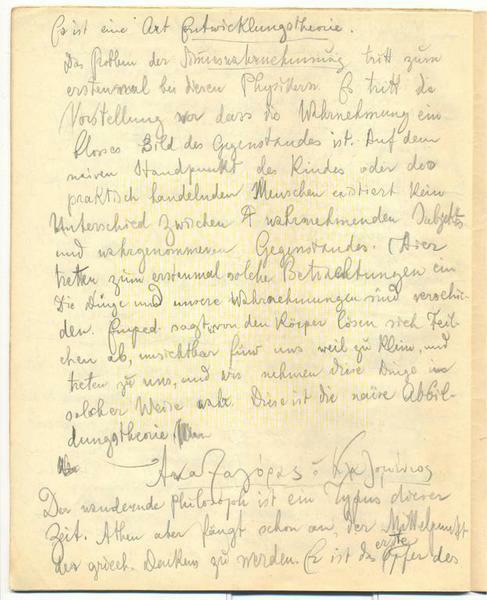 Es ist eine Art Entwicklungstheorie.
Das Problem der Sinneswahrnehmung tritt zum
erstenmal bei diesen Physikern. Es tritt die
Vorstellung vor dass die Wahrnehmung ein
blosses Bild des Gegenstandes ist. Auf dem
naiven Standpunkt des Kindes oder des
praktisch handelnden Menschen existiert kein
Unterschied zwischen wahrnehmenden Subjekts
und wahrgenommenen Gegenstandes. (Hier
treten zum erstenmal solche Betrachtungen ein
Die Dinge und unsere Wahrnehmungen sind verschie-
den. Emped. sagt, von den Körper lösen sich Teil-
chen ab, unsichtbar für uns weil zu klein, und
treten zu uns, und wir nehmen diese Dinge in
solcher Weise wahr. Diese ist die naïve Abbil-
dungstheorie.
Ἀναξαγόρας ὁ Κλαζομένιος
Der wandernde Philosoph ist ein Typus dieser
Zeit. Athen aber fängt schon an, der Mittelpunkt
des griech. Denkens zu werden. Er ist das erste Opfer des